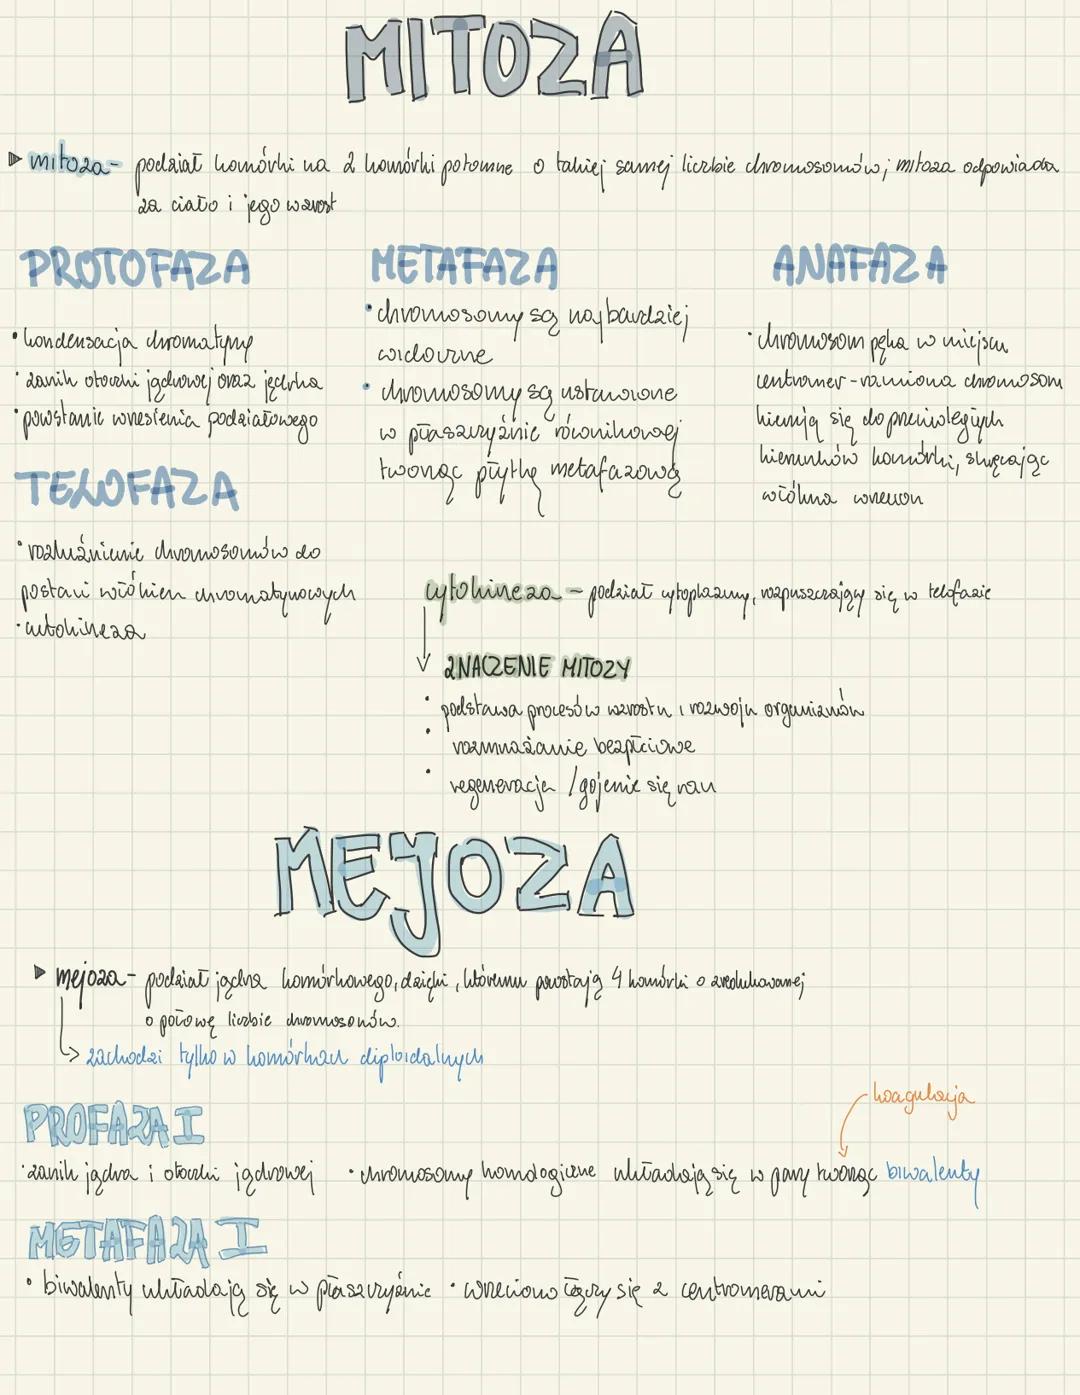 MITOZA
mitoza - podział komórki na 2 komórki potomne o takiej samej liczbie chromosomów; mitoza odpowiada
za ciało i jego wzrost
PROTOFAZA
• kondensacja chromatyny
• zanik otoczki jądrowej oraz jąderka
• powstanie wrzesienia podziałowego
METAFAZA
• chromosomy są najbardziej
widoczne
• chromosomy są ustawione
w płaszczyźnie równikowej
tworząc płytkę metafazową
ANAFAZA
• chromosom pęka w miejscu
centromer - ramiona chromosom
kierują się do przeciwległych
kierunków komórki, skręcając
włókna wrzecion
TELOFAZA
• rozluźnienie chromosomów do
postaci włókien chromatynowych
• cytokineza
cytokineza - podział cytoplazmy, rozpuszczający się w telofazie
ZNACZENIE MITOZY
• podstawa procesów wzrostu i rozwoju organizmów
• rozmnażanie bezpłciowe
• regeneracja / gojenie się ran
MEJOZA
mejoza - podział jądra komórkowego, dzięki, któremu powstają 4 komórki o zredukowanej
o połowę liczbie chromosomów.
zachodzi tylko w komórkach diploidalnych
PROFAZA I
koagulacja
• zanik jądra i otoczki jądrowej • chromosomy homologiczne układają się w pary tworząc biwalenty
METAFAZA I
• biwalenty układają się w płaszczyźnie • wrzeciono łączy się z centromerami